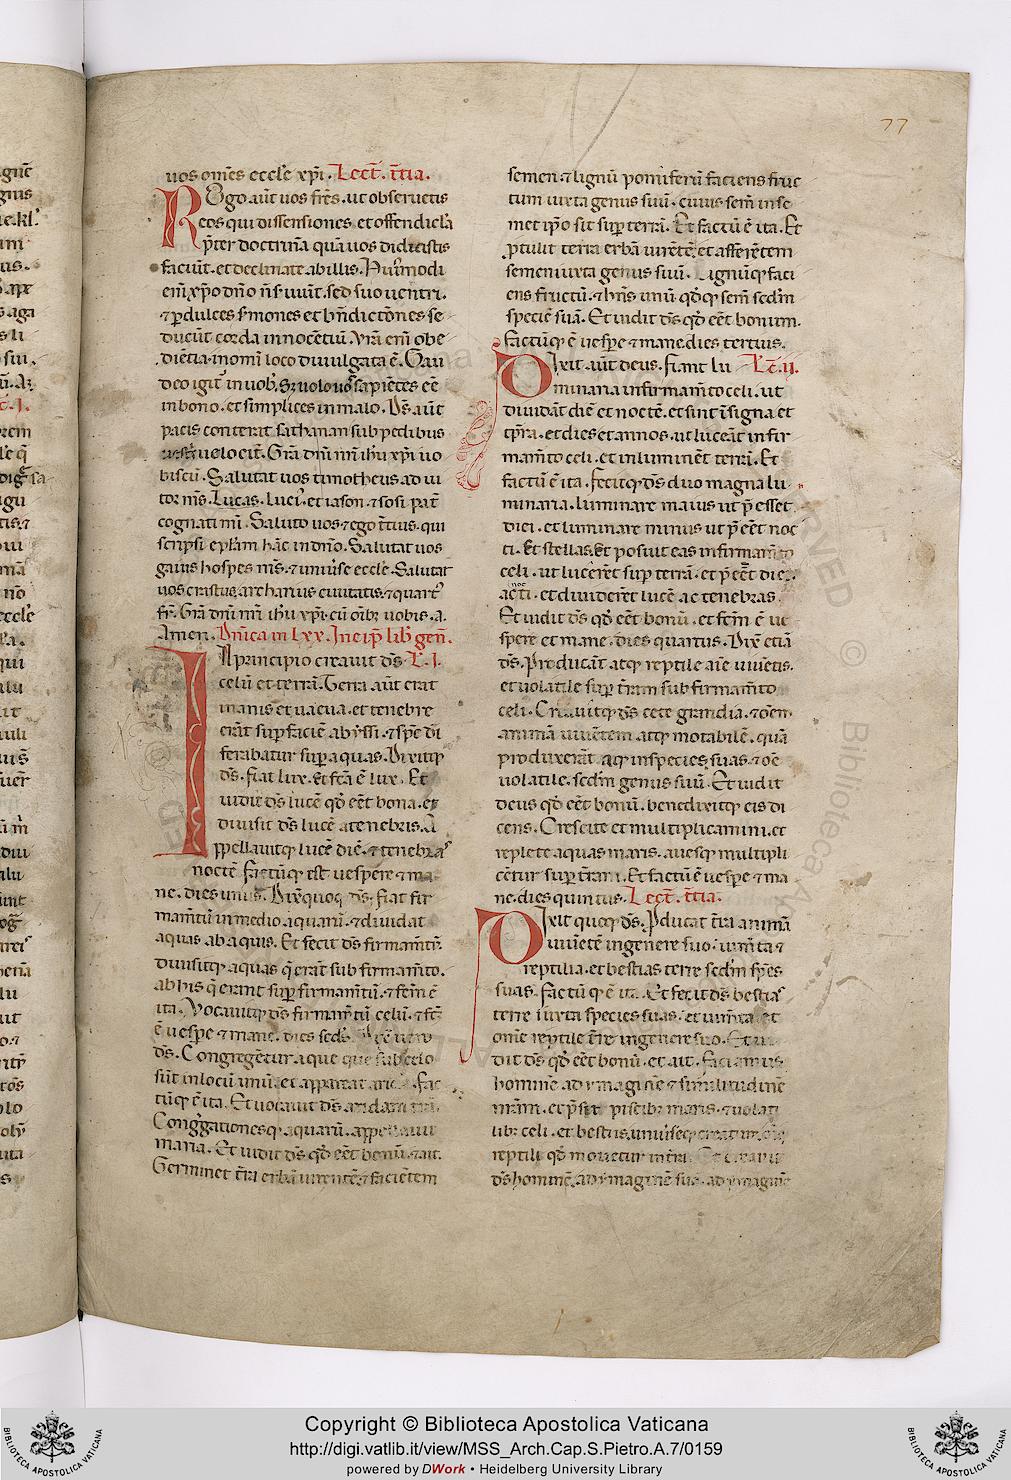 77
uos om̄s eccl̄e xp̄i. Lect̄. t̄tia.
Rogo aūt uos fr̄es. ut obseruetis
eos qui dissensiones. et offendicl̄a
p̄ter doctrinā quā uos didicistis
faciūt. et declinate ab illis. Hui᷒modi
eni᷒ xp̄o dn̄o n̄o ñ seruiūt. sed suo uentri.
⁊ p̄ dulces s᷒mones et bn̄dictōnes se
ducūt corda innocētiū. Vr̄a eni᷒ obe
diētia in om̄i loco diuulgata ē. Gau
deo igit᷒ in uob᷒. Sꝫ uolo uos sapiētes eē
in bono. et simplices in malo. Ds̄ aūt
pacis conterat sathanan sub pedibus
uestris uelocit᷒. Gr̄a dn̄i nr̄i ih̄u xp̄i uo
biscū. Salutat uos timotheus adiu
tor m̄s. Lucas. Luci᷒. et iason. ⁊ sosipat᷒
cognati m̄i. Saluto uos. ⁊ ego t̄tius. qui
scripsi ep̄lam hāc in dn̄o. Salutat uos
gaius hospes m̄s. ⁊ uniūse eccl̄e. Salutat
uos erastus archarius ciuitatis. ⁊ quart᷒
fr̄. Gr̄a dn̄i nr̄i ih̄u xp̄i cū om̄ib᷒ uobis. a.
Amen. Dn̄ica in lxx. Incip̄ lib᷒ gen̄.
In principio creauit ds̄ L̄. I.
celū et terrā. Terra aūt erat
inanis et uacua. et tenebre
erāt sup̄ faciē abyssi. ⁊ sp̄c di᷒
ferabatur sup̄ aquas. Dixitqꝫ
ds̄. fiat lux. Et fc̄a ē lux. Et
uidit ds̄ lucē qd̄ eēt bona. et
diuisit ds̄ lucē a tenebris. A
ppellauitqꝫ lucē diē. ⁊ tenebras
noctē. factūqꝫ est uespere ⁊ ma
ne. dies unus. Dixit quoqꝫ ds̄. fiat fir
mam̄tū in medio aquarū. ⁊ diuidat
aquas ab aquis. Et fecit ds̄ firmam̄tū.
diuisitqꝫ aquas q̄ erāt sub firmam̄to.
ab his q̄ erant sup̄ firmam̄tū. ⁊ fc̄m ē
ita. Vocauitqꝫ ds̄ firmam̄tū celū. ⁊ fc̄m
ē uesp̄e ⁊ mane. dies sc̄ds. Dixit uero
ds̄. Congregētur aque que sub celo
sūt in locū unū. et appareat arida. fac
tūqꝫ ē ita. Et uocauit ds̄ aridam t̄rā.
Cong᷒gationesqꝫ aquarū. appellauit
maria. Et uidit ds̄ qd̄ eēt bonū. ⁊ ait.
Germinet t̄ra erbā uirentē. ⁊ faciētem
semen. ⁊ lignū pomiferū faciens fruc
tum iuxta genus suū. cuius sem̄ in se
met ip̄o sit sup̄ terrā. Et factū ē ita. Et
p̄tulit terra erbā uirētē. et afferētem
semen iuxta genus suū. Lignūqꝫ faci
ens fructū. ⁊ hn̄s unūqd̄qꝫ sem̄ sc̄dm
speciē suā. Et uidit ds̄ qd̄ eēt bonum.
factūqꝫ ē uesp̄e ⁊ mane. dies tertius.
Dixit aūt deus. fiant lu L̄c. ij.
minaria in firmam̄to celi. ut
diuidāt diē et noctē. et sint ī signa et
tp̄ra. et dies et annos. ut luceāt in fir
mam̄to celi. et inluminēt terrā. Et
factū ē ita. fecitqꝫ ds̄ duo magna lu
minaria. luminare maius ut p̄esset
diei. et luminare minus ut p̄eēt noc
ti. Et stellas. Et posuit eas in firmam̄to
celi. ut lucerēt sup̄ terrā. et p̄eēt diei.
ac nocti. et diuiderēt lucē ac tenebras.
Et uidit ds̄ qd̄ eēt bonū. et fc̄m ē ue
spere et mane. dies quartus. Dixit etiā
ds̄. Producāt aqꝫ reptile aīe uiuētis.
et uolatile sup̄ t̄ram sub firmam̄to
celi. Creauitqꝫ ds̄ cete grandia. ⁊ oēm
animā uiuētem atqꝫ motabilē. quā
produxerāt aqꝫ in species suas. ⁊ oē
uolatile. sc̄dm genus suū. Et uidit
deus qd̄ eēt bonū. benedixitqꝫ eis di
cens. Crescite et multiplicamini. et
replete aquas maris. auesqꝫ multipli
cētur sup̄ t̄ram. Et factū ē uesp̄e ⁊ ma
ne. dies quintus. Lect̄. t̄tia.
Dixit quoqꝫ ds̄. Producat t̄ra animā
uiuētē in genere suo. ium̄ta ⁊
reptilia. et bestias terre sc̄dm sp̄es
suas. factūqꝫ ē ita. Et fecit ds̄ bestias
terre iuxta species suas. et ium̄ta. et
om̄e reptile t̄re in genere suo. Et ui
dit ds̄ qd̄ eēt bonū. et ait. faciamus
hominē ad ymaginē ⁊ similitudinē
nr̄am. et p̄sit piscib᷒ maris. ⁊ uolati
lib᷒ celi. et bestiis. uniūseqꝫ creature. om̄iqꝫ
reptili qd̄ mouetur in t̄ra. Et creauit
ds̄ hominē. ad ymaginē suā. ad ymaginē
Copyright © Biblioteca Apostolica Vaticana
http://digi.vatlib.it/view/MSS_Arch.Cap.S.Pietro.A.7/0159
powered by DWork • Heidelberg University Library
BIBLIOTECA APOSTOLICA VATICANA
BIBLIOTECA APOSTOLICA VATICANA